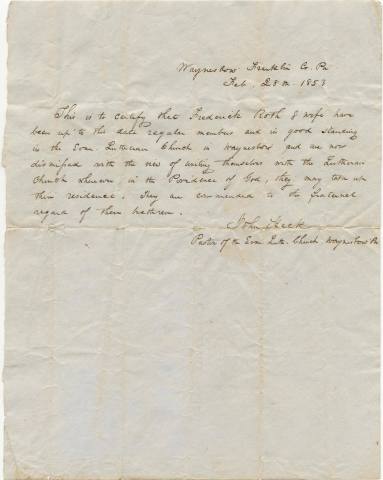 Waynesboro Franklin Co. Pa
Feb. 28th 1853
This is to certify that Frederick Roth & wife have
been up to this date regular members and in good standing
in the Evan Lutheran Church in Waynesboro and are now
dismissed with the view of uniting themselves with the Lutheran
Church wherever in the Providence of God, they may take up
their residence. They are commended to the fraternal
regard of their brethren.
John Heck
Pastor of the Evan Luth. Church Waynesboro Pa